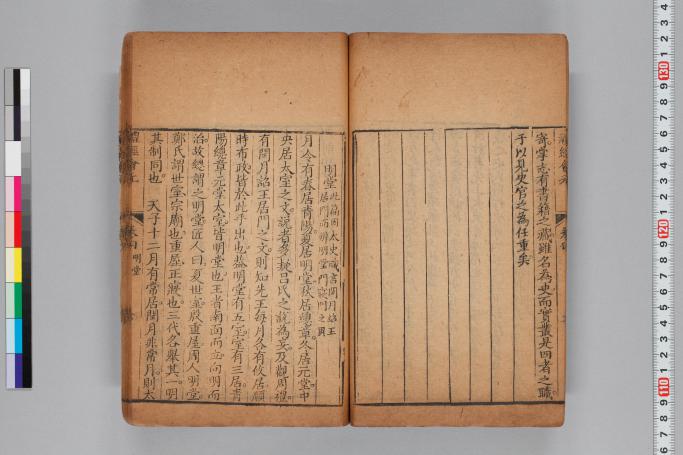 寄掌志有書籍之藏雖名為史而實叢是四者之職
于以見史官之為任重矣
明堂
此篇因太史職言閏月詔王
居門而辨明堂門寢門之異
月令有春居青陽夏居明堂秋居總章冬居元堂中
央居太室之文說者多疑呂氏之說為妄及觀周禮
有閏月詔王居門之文則知先王每月各有攸居頒
時布政皆於此乎出也葢明堂有五室室有三居青
陽總章元堂太室皆明堂也王者南面而立向明而
治故總謂之明堂匠人曰夏世室殷重屋周人明堂
鄭氏謂世室宗廟也重屋正寢也三代各舉其一明
其制同也 天子十二月有常居閏月非常月則太
禮經會元
卷四 明堂